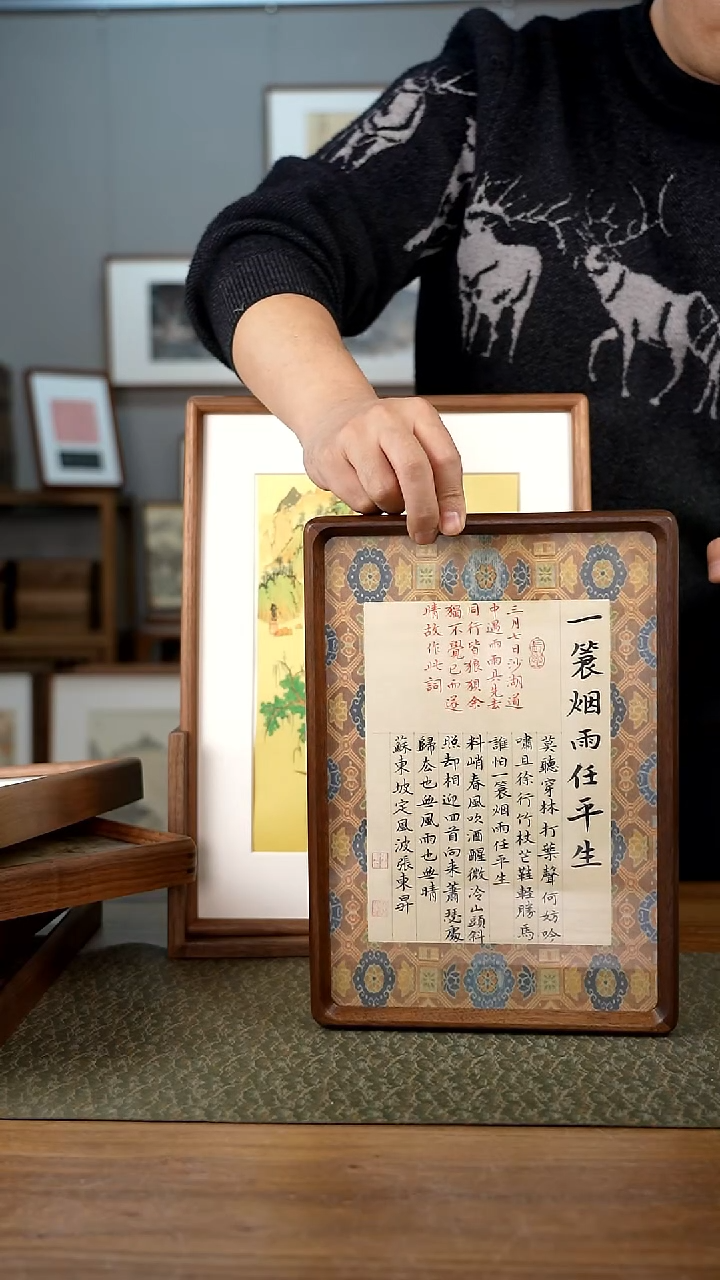 一蓑烟雨任平生
三月七日沙湖道
中遇雨雨具先去
同行皆狼狽余
獨不覺已而遂
晴故作此詞
莫聽穿林打葉聲何妨吟
嘯且徐行竹杖芒鞋輕勝馬
誰怕一蓑烟雨任平生
料峭春風吹酒醒微冷山頭斜
照却相迎回首向来蕭瑟處
歸去也無風雨也無晴
蘇東坡定風波張東昇